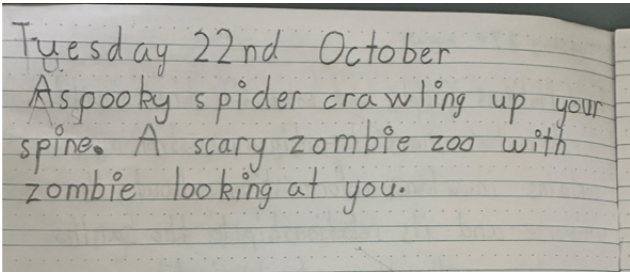 Tuesday 22nd October
A spooky spider crawling up your
spine. A scary zombie zoo with
zombie looking at you.